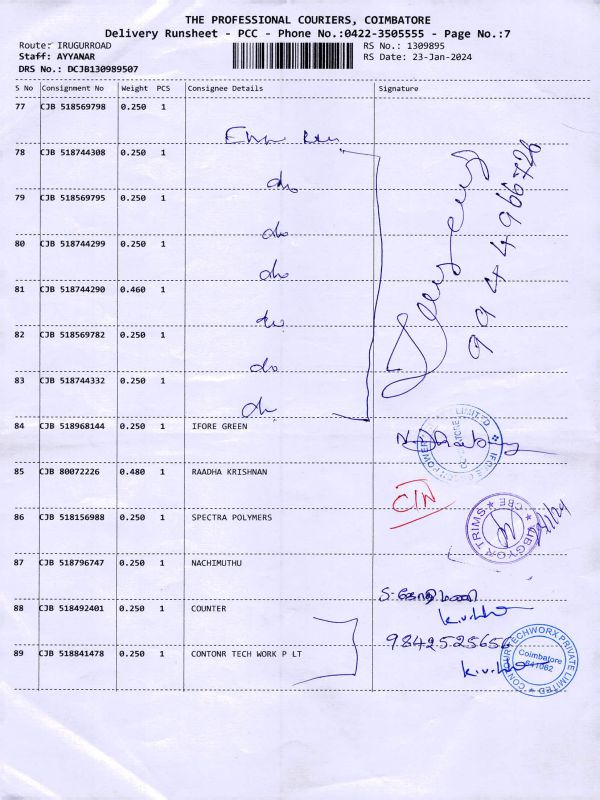 THE PROFESSIONAL COURIERS, COIMBATORE
Delivery Runsheet - PCC - Phone No.:0422-3505555 - Page No.:7
Route: IRUGURROAD RS No.: 1309895
Staff: AYYANAR RS Date: 23-Jan-2024
DRS No.: DCJB130989507
S No Consignment No Weight PCS Consignee Details Signature
77 CJB 518569798 0.250 1
78 CJB 518744308 0.250 1
do
79 CJB 518569795 0.250 1
do
80 CJB 518744299 0.250 1
do
81 CJB 518744290 0.460 1
do
82 CJB 518569782 0.250 1
do
83 CJB 518744332 0.250 1
do
9944966726
84 CJB 518968144 0.250 1 IFORE GREEN
85 CJB 80072226 0.480 1 RAADHA KRISHNAN
C/N
86 CJB 518156988 0.250 1 SPECTRA POLYMERS
TRIMS ★ CBE ★
87 CJB 518796747 0.250 1 NACHIMUTHU
88 CJB 518492401 0.250 1 COUNTER
9842525656
89 CJB 518841478 0.250 1 CONTONR TECH WORK P LT
Coimbatore
641062